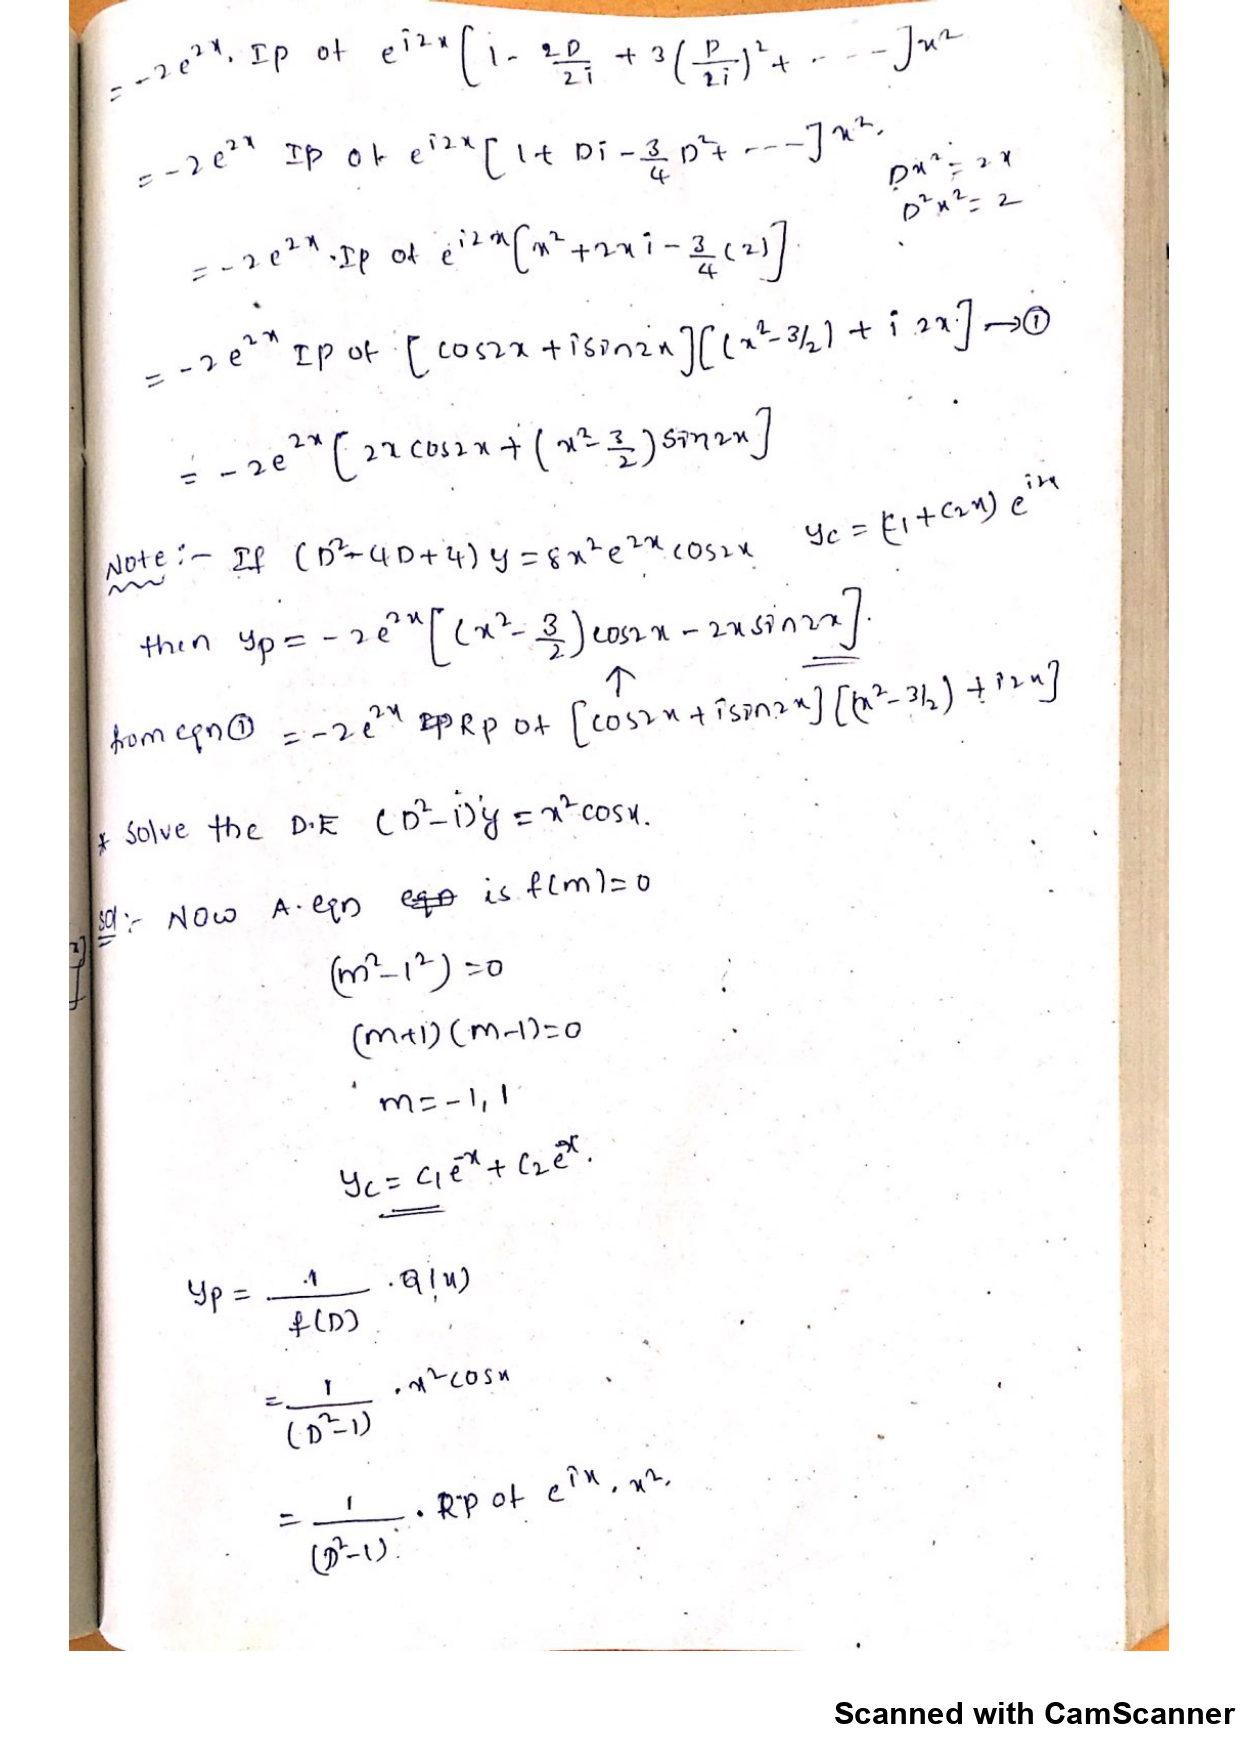 = -2e^{2x}. Ip of e^{i2x} [1 - 2D/2i + 3(D/2i)^2 + ... -]x^2
= -2e^{2x} Ip of e^{i2x} [1 + Di - 3/4 D^2 + ---]x^2.
Dx^2 = 2x
D^2x^2 = 2
= -2e^{2x}.Ip of e^{i2x} [x^2 + 2xi - 3/4 (2)]
= -2e^{2x} Ip of [cos2x + isin2x][(x^2 - 3/2) + i 2x] → ①
= -2e^{2x} [2x cos2x + (x^2 - 3/2) sin2x]
Note :- If (D^2 - 4D + 4) y = 8x^2 e^{2x} cos2x   yc = (c1 + c2x) e^{i2x}
then yp = -2e^{2x} [(x^2 - 3/2) cos2x - 2x sin2x].
↑
from eqn ① = -2e^{2x} Rp of [cos2x + isin2x][(x^2 - 3/2) + i2x]
* Solve the D.E (D^2 - 1)y = x^2 cosx.
Sol :- Now A. eqn is f(m) = 0
(m^2 - 1^2) = 0
(m+1) (m-1) = 0
m = -1, 1
yc = c1 e^{-x} + c2 e^{x}.
yp = 1/f(D) . Q(x)
= 1/(D^2-1) . x^2 cosx
= 1/(D^2-1) . R.P of e^{ix} . x^2.
Scanned with CamScanner